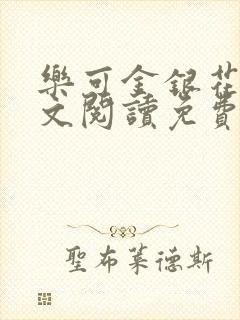 樂可金銀花
文閱讀免費
聖布萊德斯